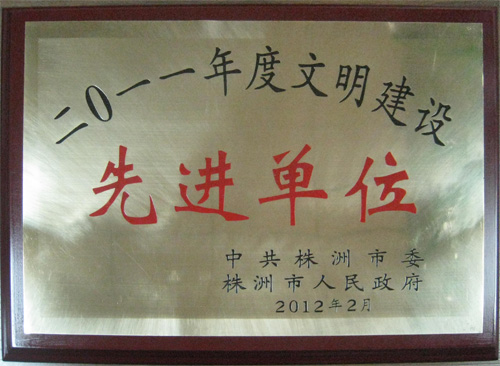 二0一一年度文明建设
先进单位
中共株洲市委
株洲市人民政府
2012年2月